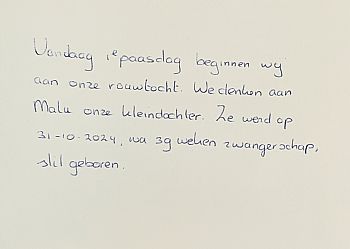 Vandaag 1e paasdag beginnen wy
aan onze rouwtocht. We denken aan
Malu onze kleindochter. Ze werd op
31-10-2024, na 39 weken zwangerschap,
stil geboren.